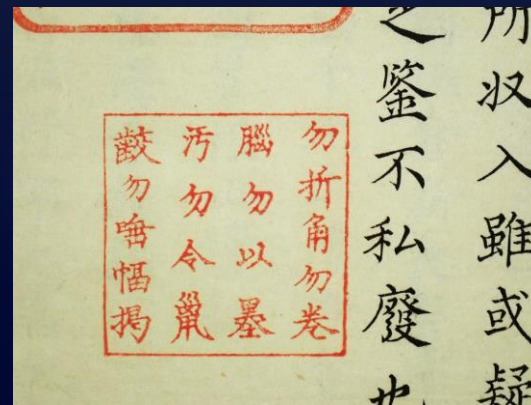 所収入雖或疑
之鍳不私廢也
勿折角勿卷
腦勿以墨
汚勿令鼠
齩勿唾幅揭